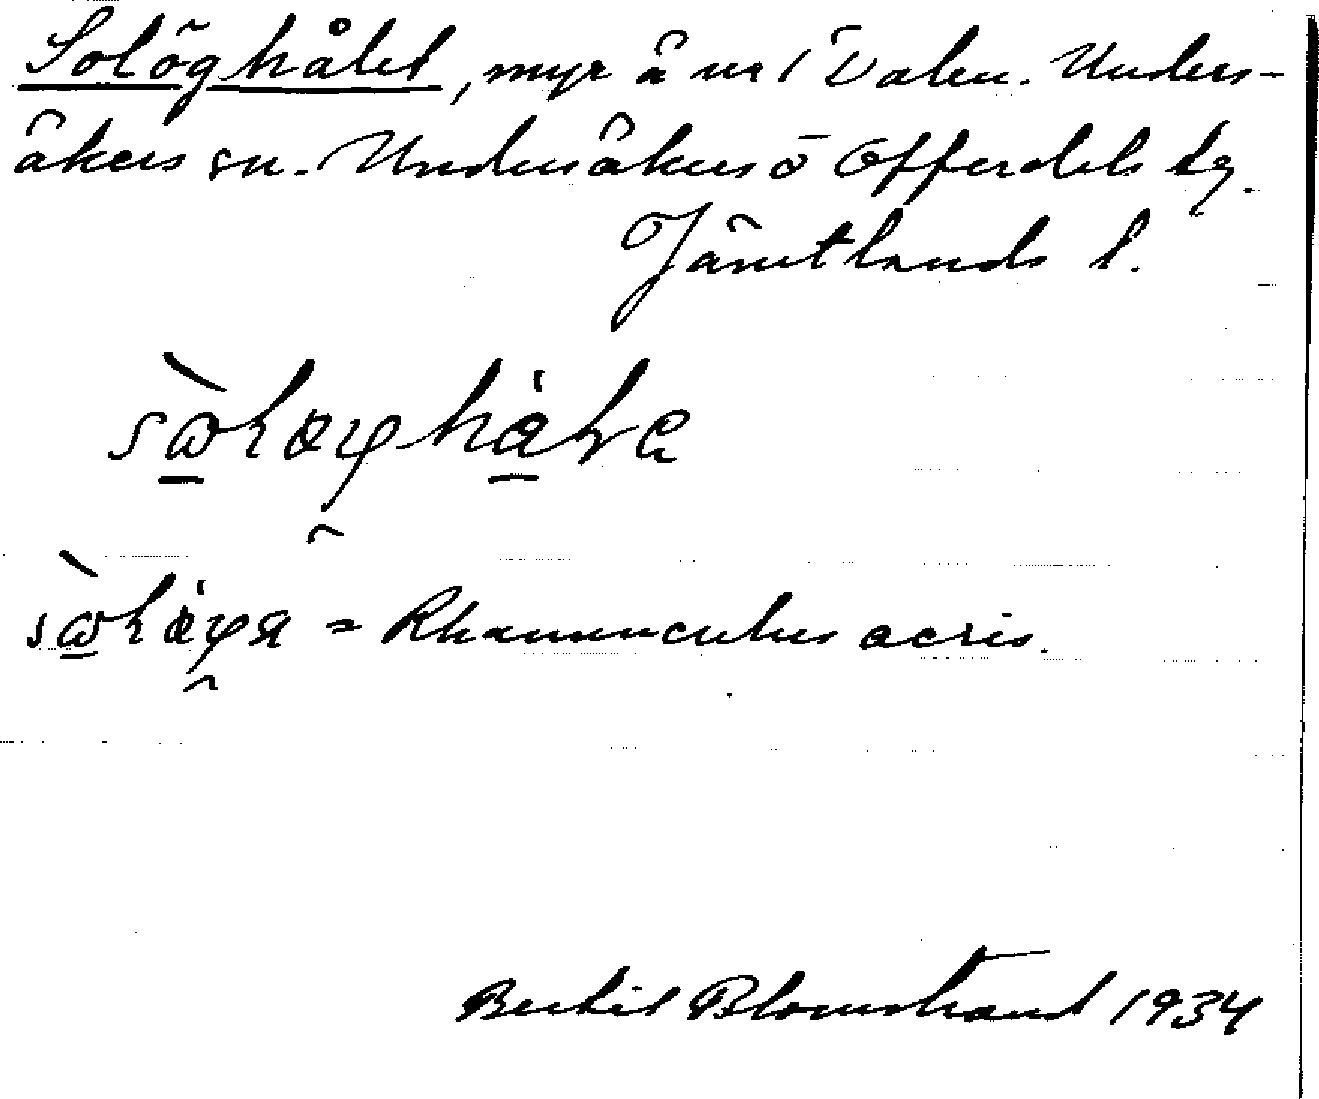 Solöghålet, myr å nr 1 Dalen. Unders-
åkers sn. Undersåkers o Offerdals tg.
Jämtlands l.
= Rhanunculus acris.
Bertil Blomstrand 1934